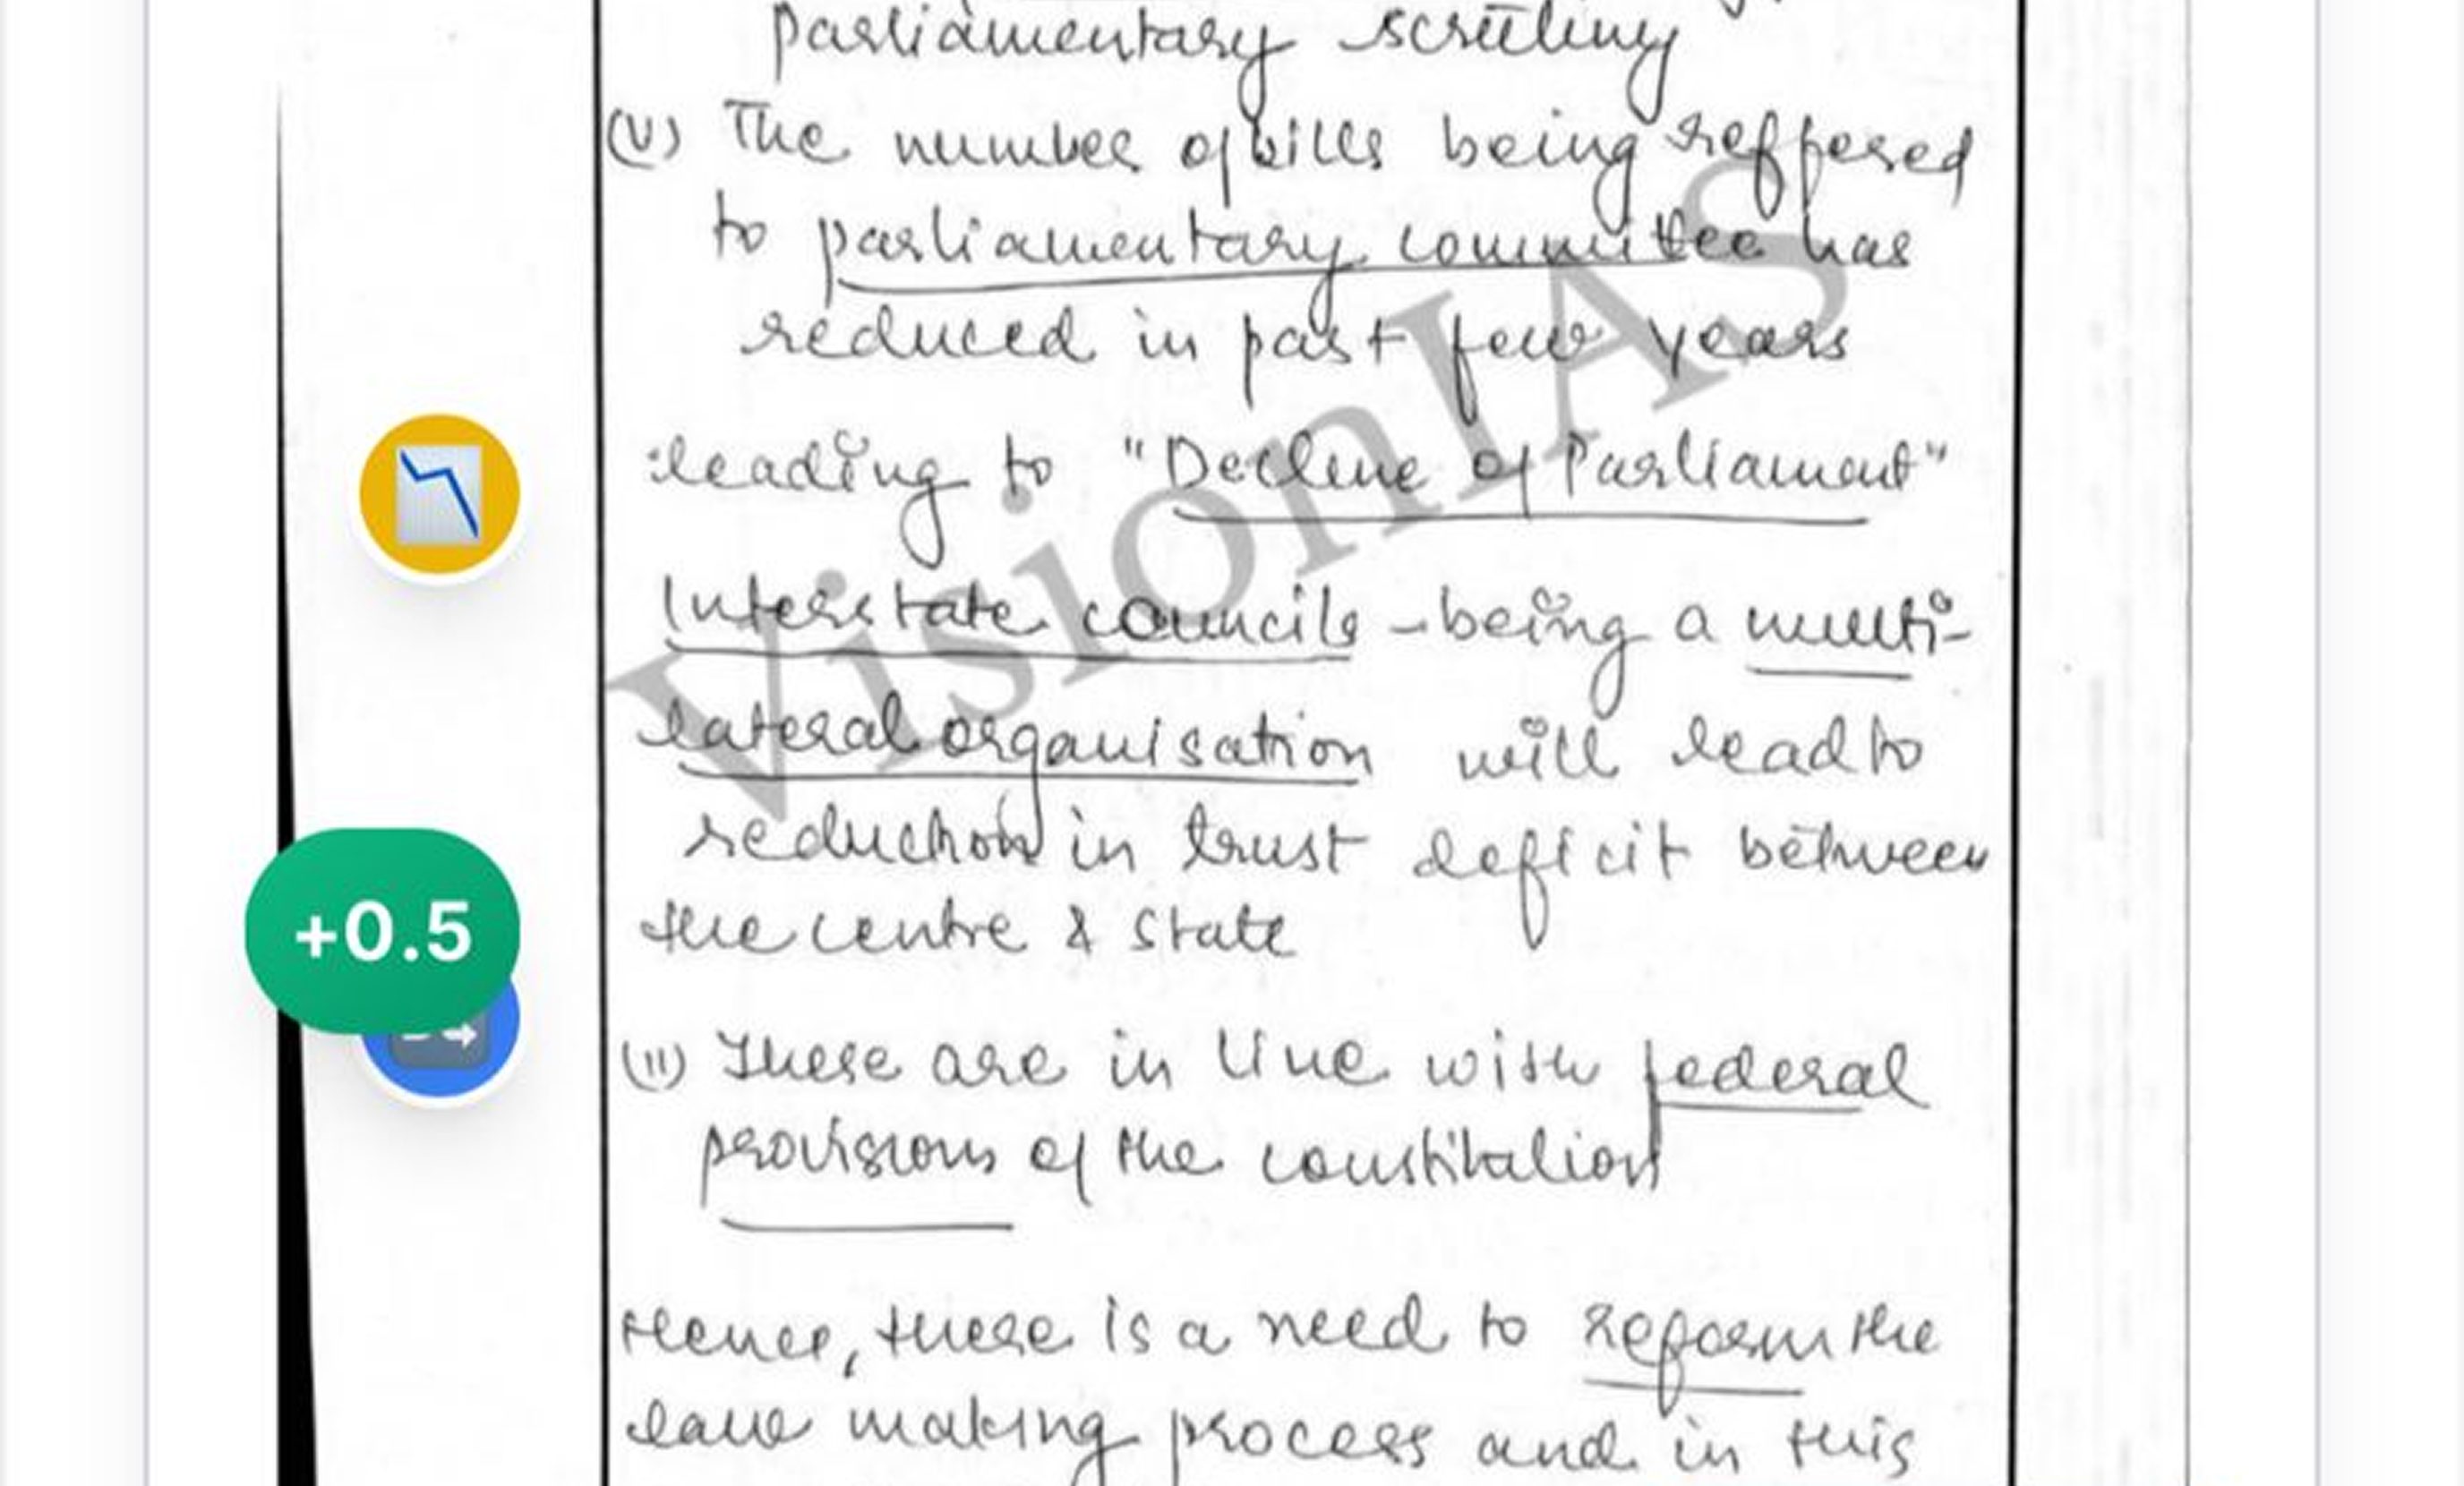 parliamentary scrutiny
(V) The number of bills being reffered
to parliamentary committee has
reduced in past few years
leading to "Decline of Parliament"
Interstate councils - being a multi-
lateral organisation will lead to
reduction in trust deficit between
the centre & state
+0.5
(II) These are in line with federal
provisions of the constitution
Hence, there is a need to reform the
law making process and in this
VisionIAS